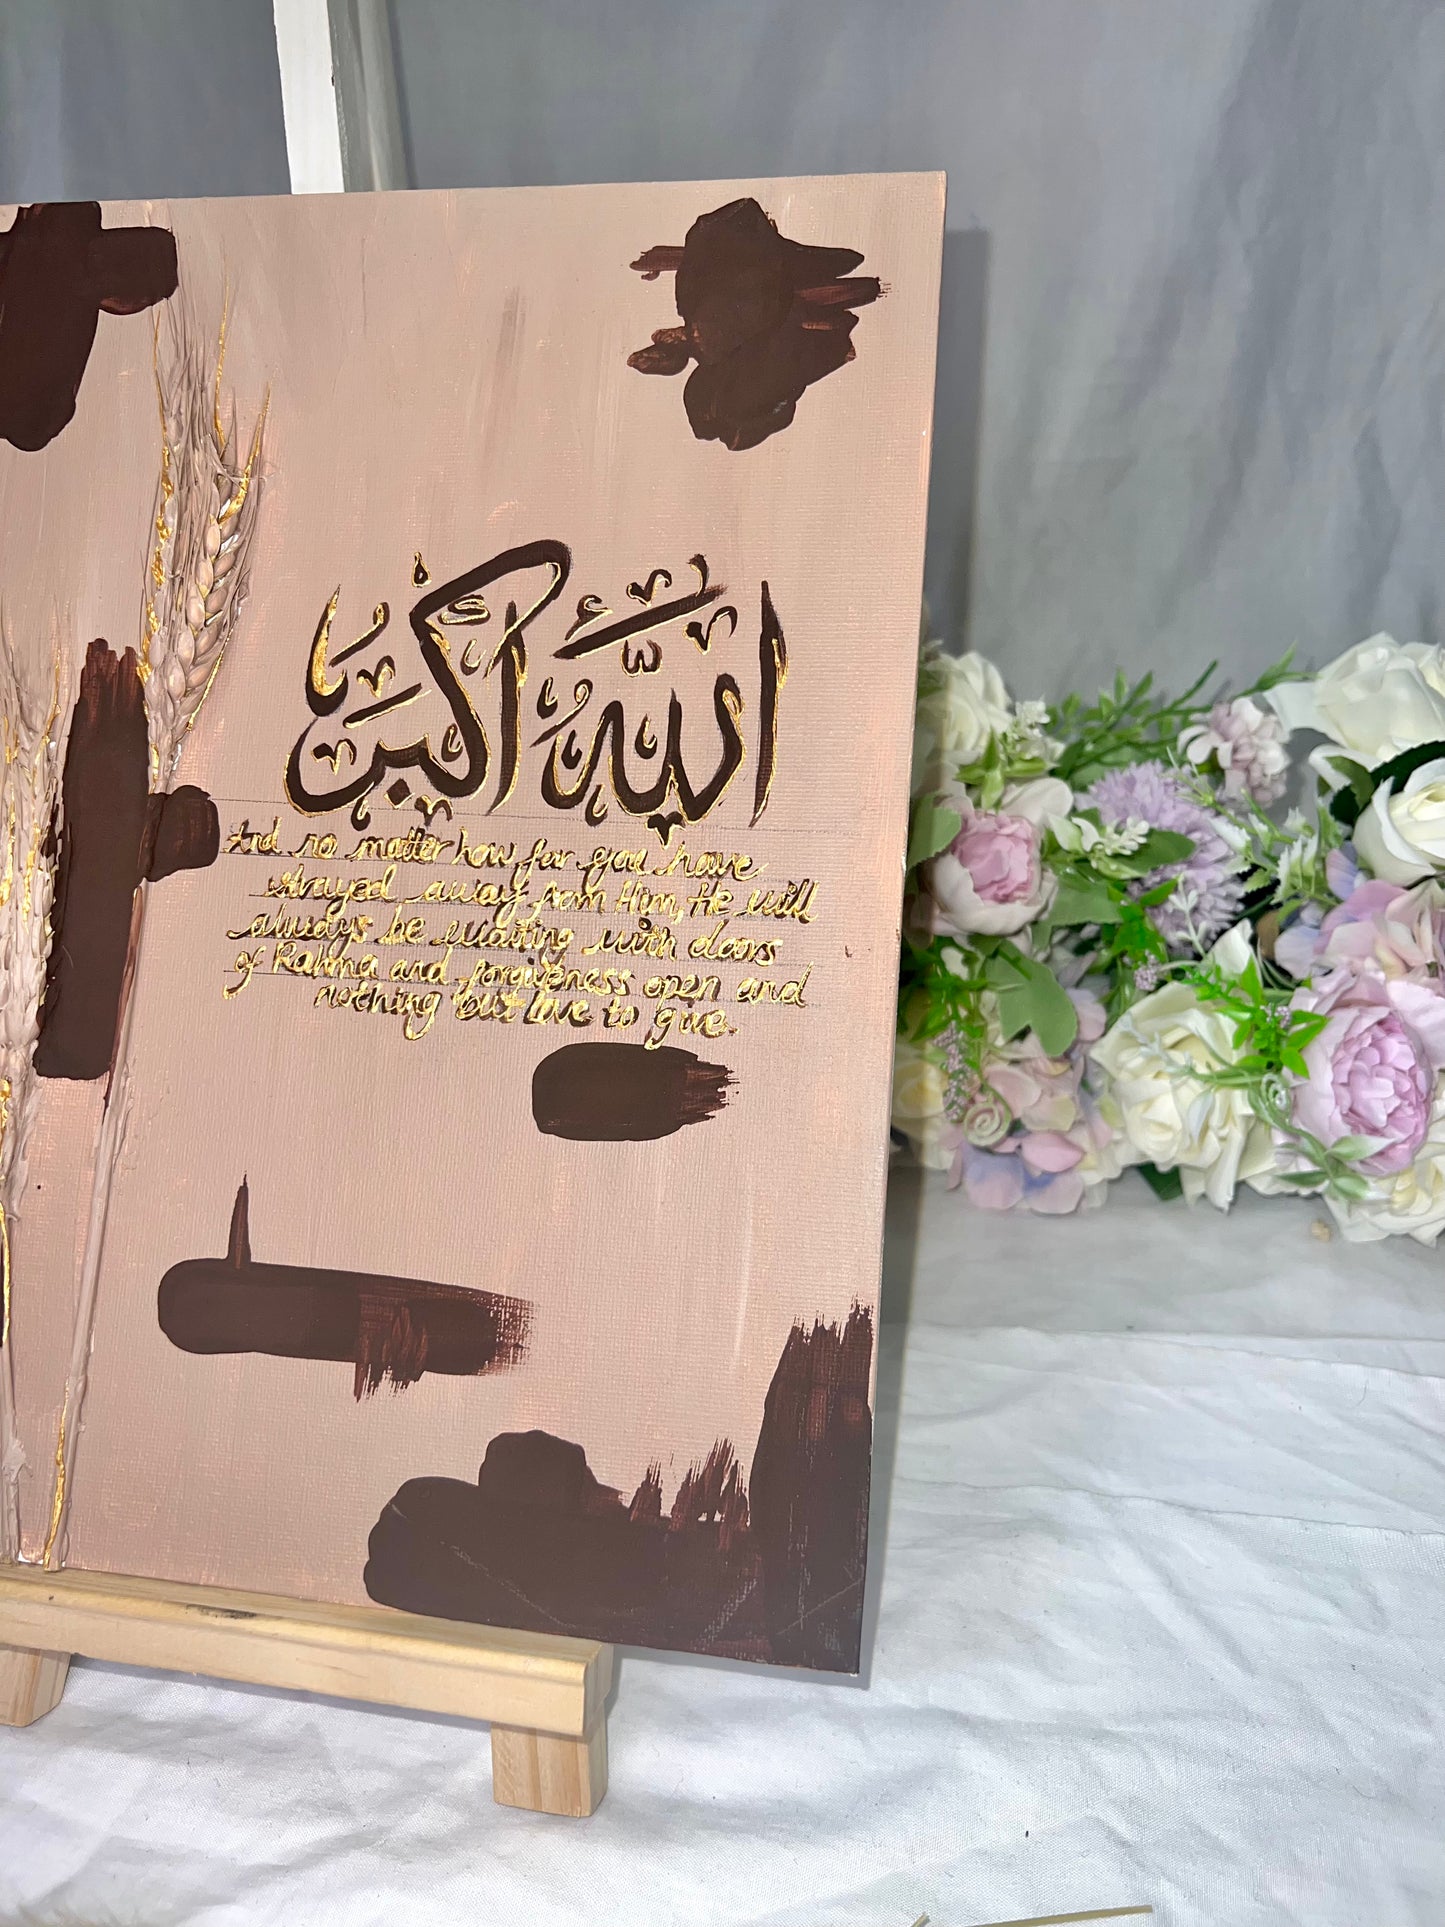 اللَّهُ أَكْبَر
And no matter how far you have
strayed away from Him, He will
always be waiting with doors
of Rahma and forgiveness open and
nothing but love to give.